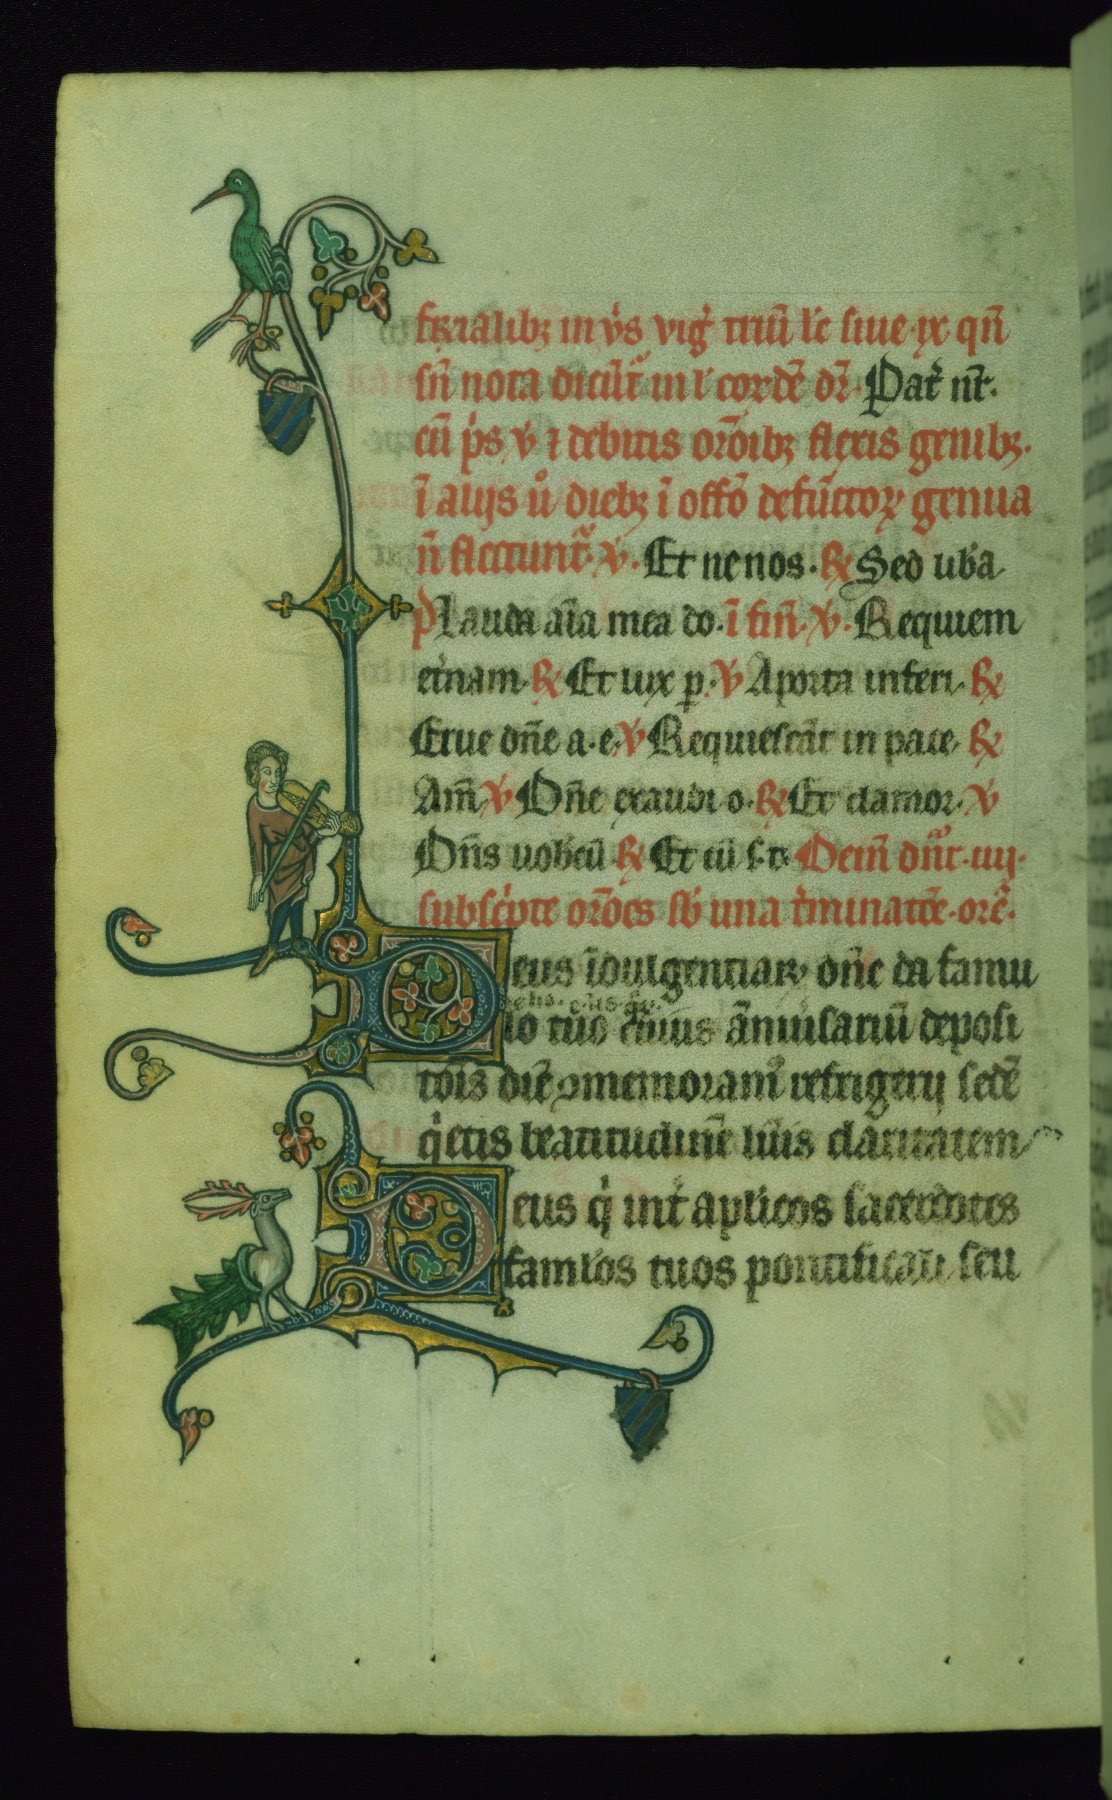 ferialibꝫ in v̓s vig̓ triū lc̄ siue ix qn̄
sn̄ nota dicūt᷑ in l cordē dr̄. Pat̓ nr̄.
cū p̓s v̓ ⁊ debitis or̄oībꝫ flexis genibꝫ.
ī alijs u̓ diebꝫ ī offō defūctoꝝ genua
n̄ flectunt᷑. v̓. Et ne nos. ℟ Sed lib̓a
P̓ Lauda aīa mea do. ī fin̄. v̓. Requiem
et̓nam. ℟ Et lux p̲. v̓ A porta inferi. ℟
Erue dn̄e a. e. v̓ Requiescāt in pace. ℟
Am̄ v̓ Dn̄e exaudi o. ℟ Et clamor. v̓
Dn̄s uobcū ℟ Et cū s. t.
subsc̓pte or̄oēs sb̓ una t̓minatōe
Deus īdulgentiaꝝ dn̄e da famu
lo tuo cuius ān̄iūsariū deposi
tōis diē ꝯmemoram᷒ refrigerij sedē
q̓etis beatitudinē lūīs claritatem
Deus q̓ int̓ ap̄licos sacerdotes
famlos tuos pontificali seu